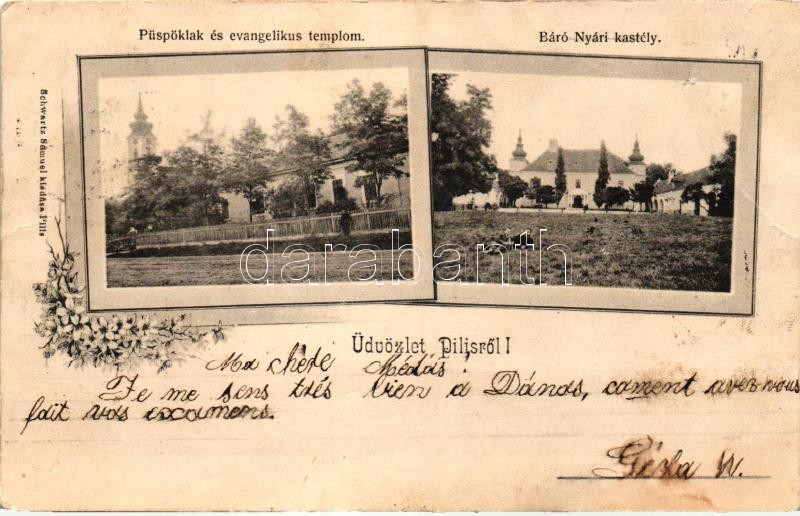 Püspöklak és evangelikus templom.
Báró Nyári kastély.
Schwartz Sámuel kiadása Pilis
darabanth!
Üdvözlet Pilisről!
Ma chère Médás!
Je me sens très bien a Dános, coment avez-vous
fait vos examens.
Gézla W.